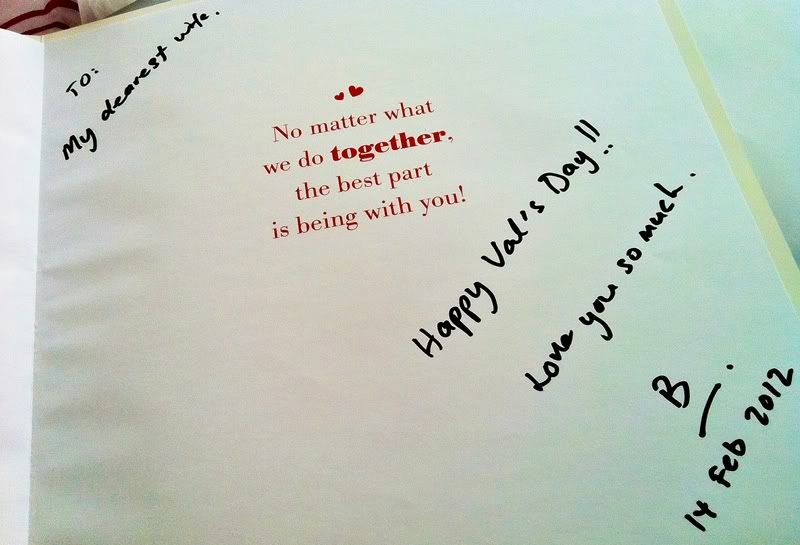 TO:
My dearest wife.
No matter what
we do together,
the best part
is being with you!
Happy Val's Day!!
Love you so much.
B.
14 Feb 2012